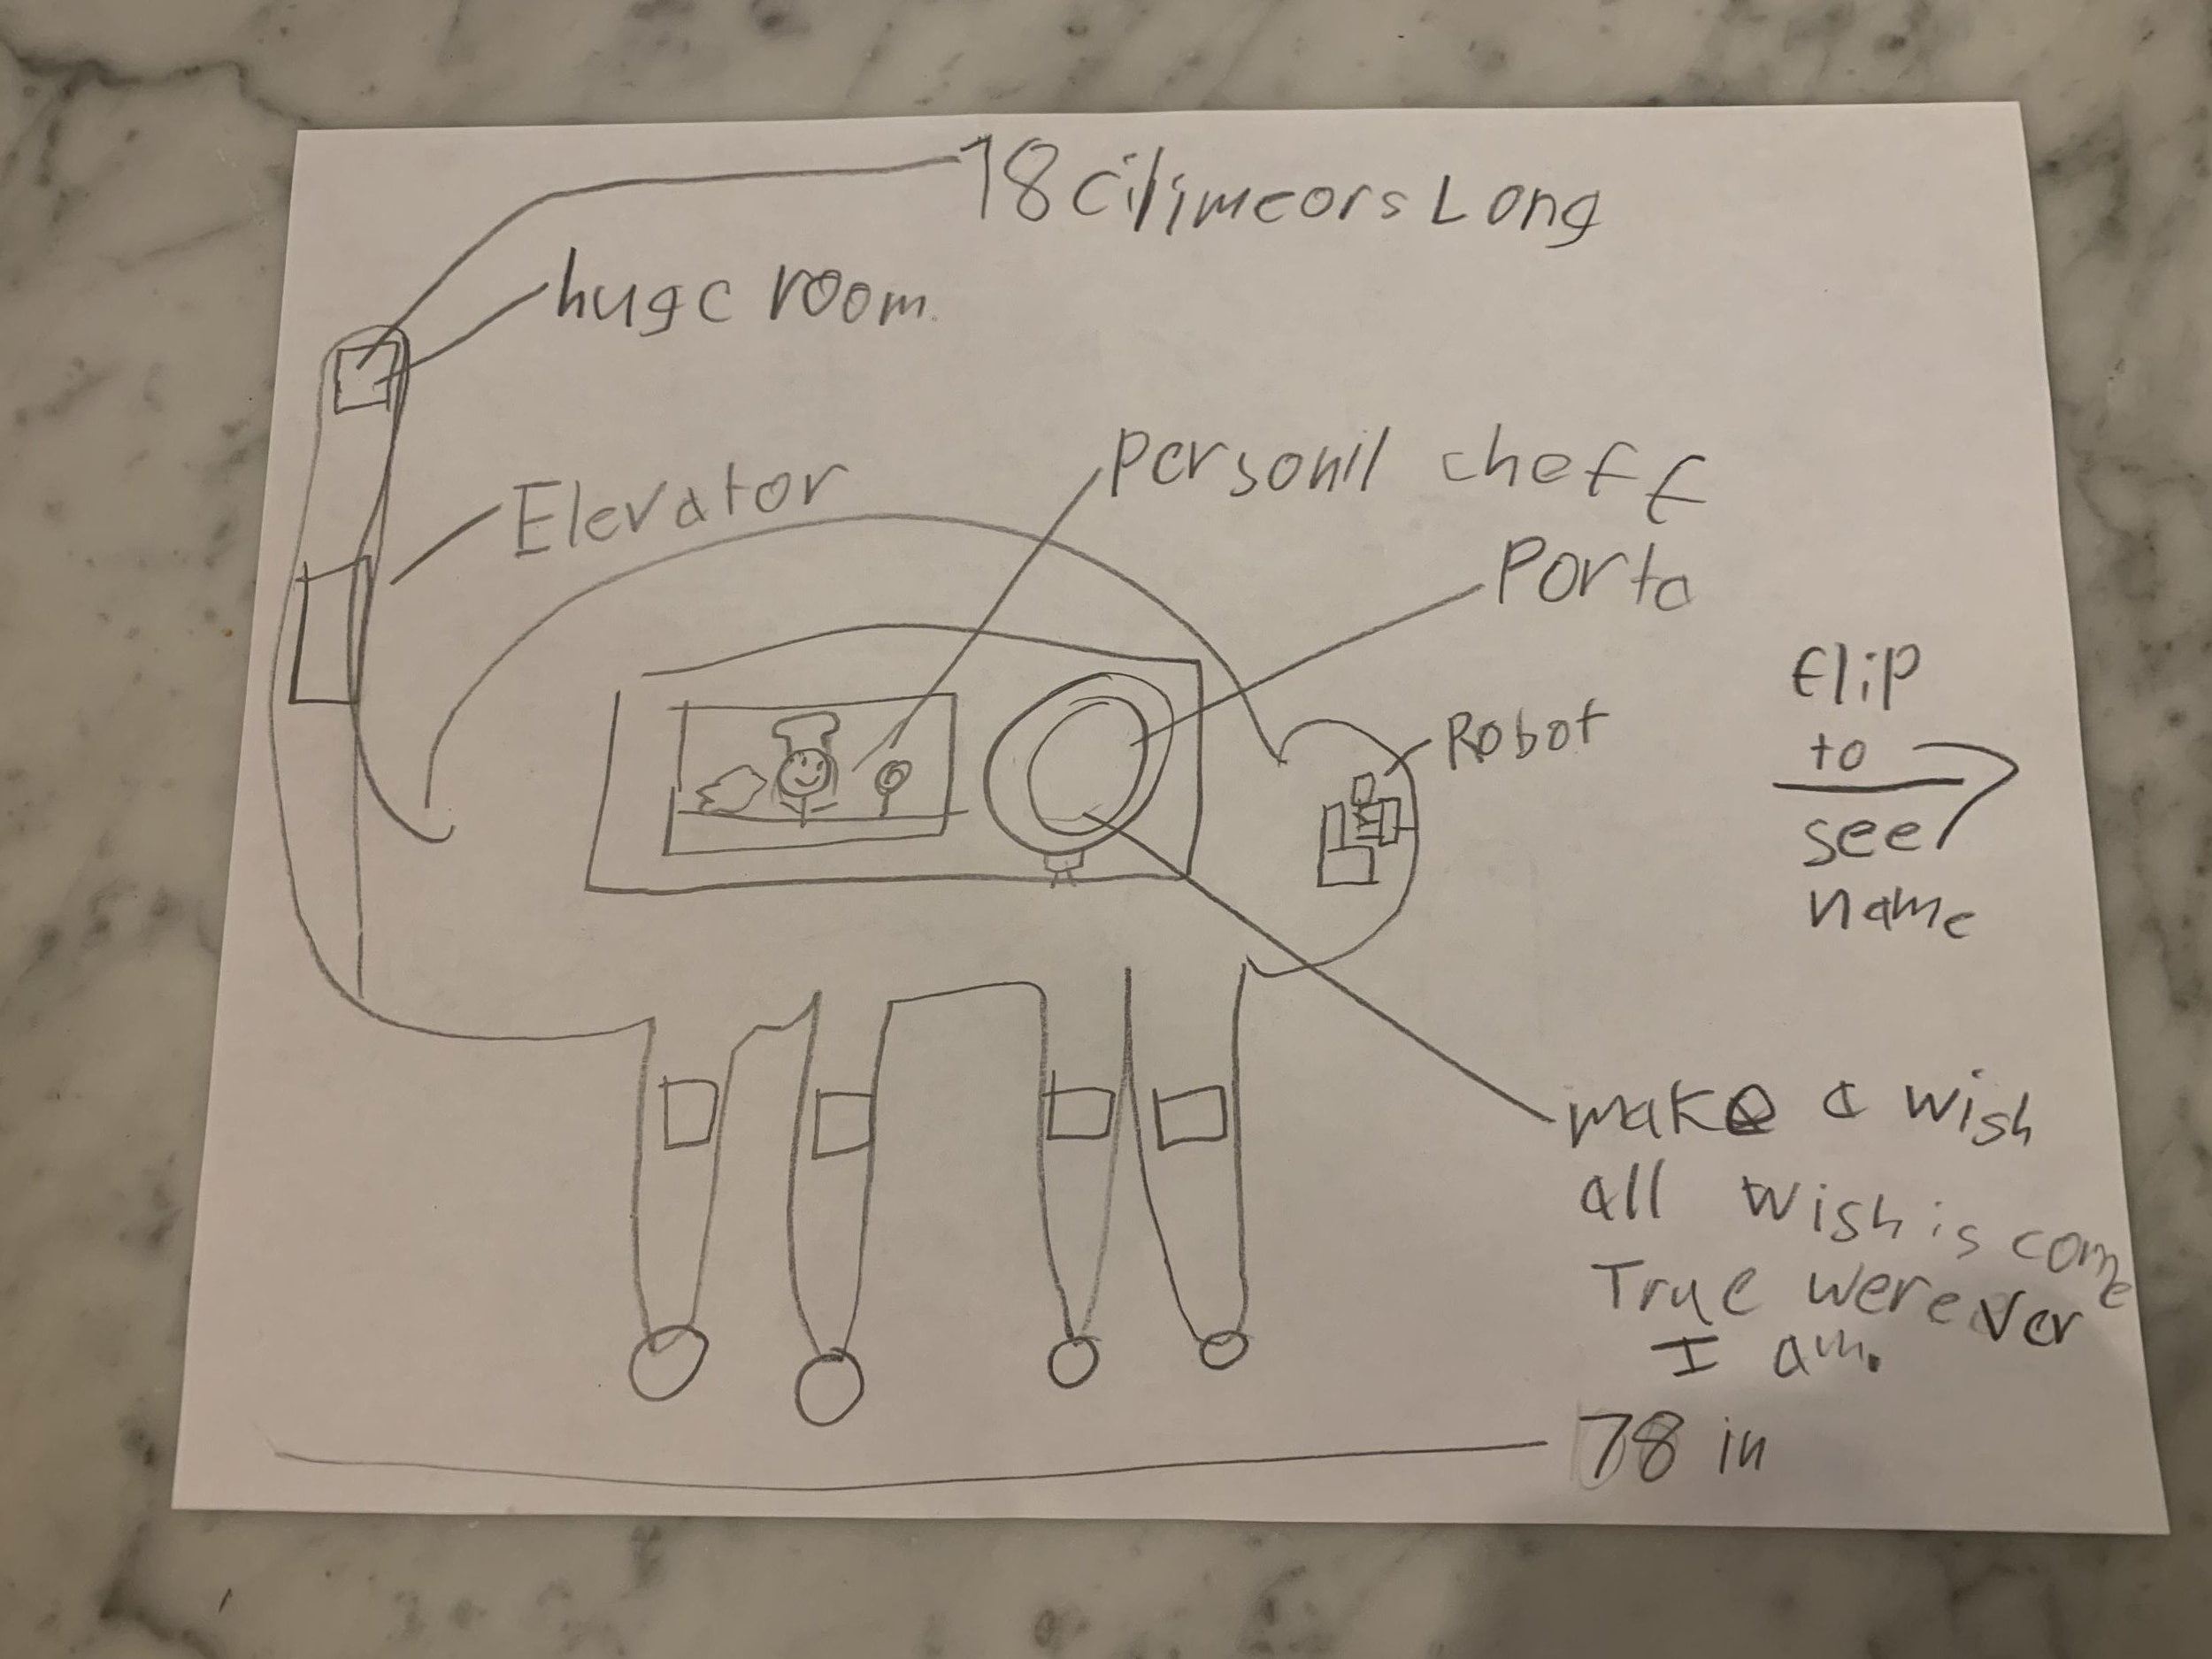 78 cilimeors Long
huge room.
Elevator
personil cheff
Porta
Robot
flip
to
see
name
make a wish
all wish is come
True werever
I am.
78 in